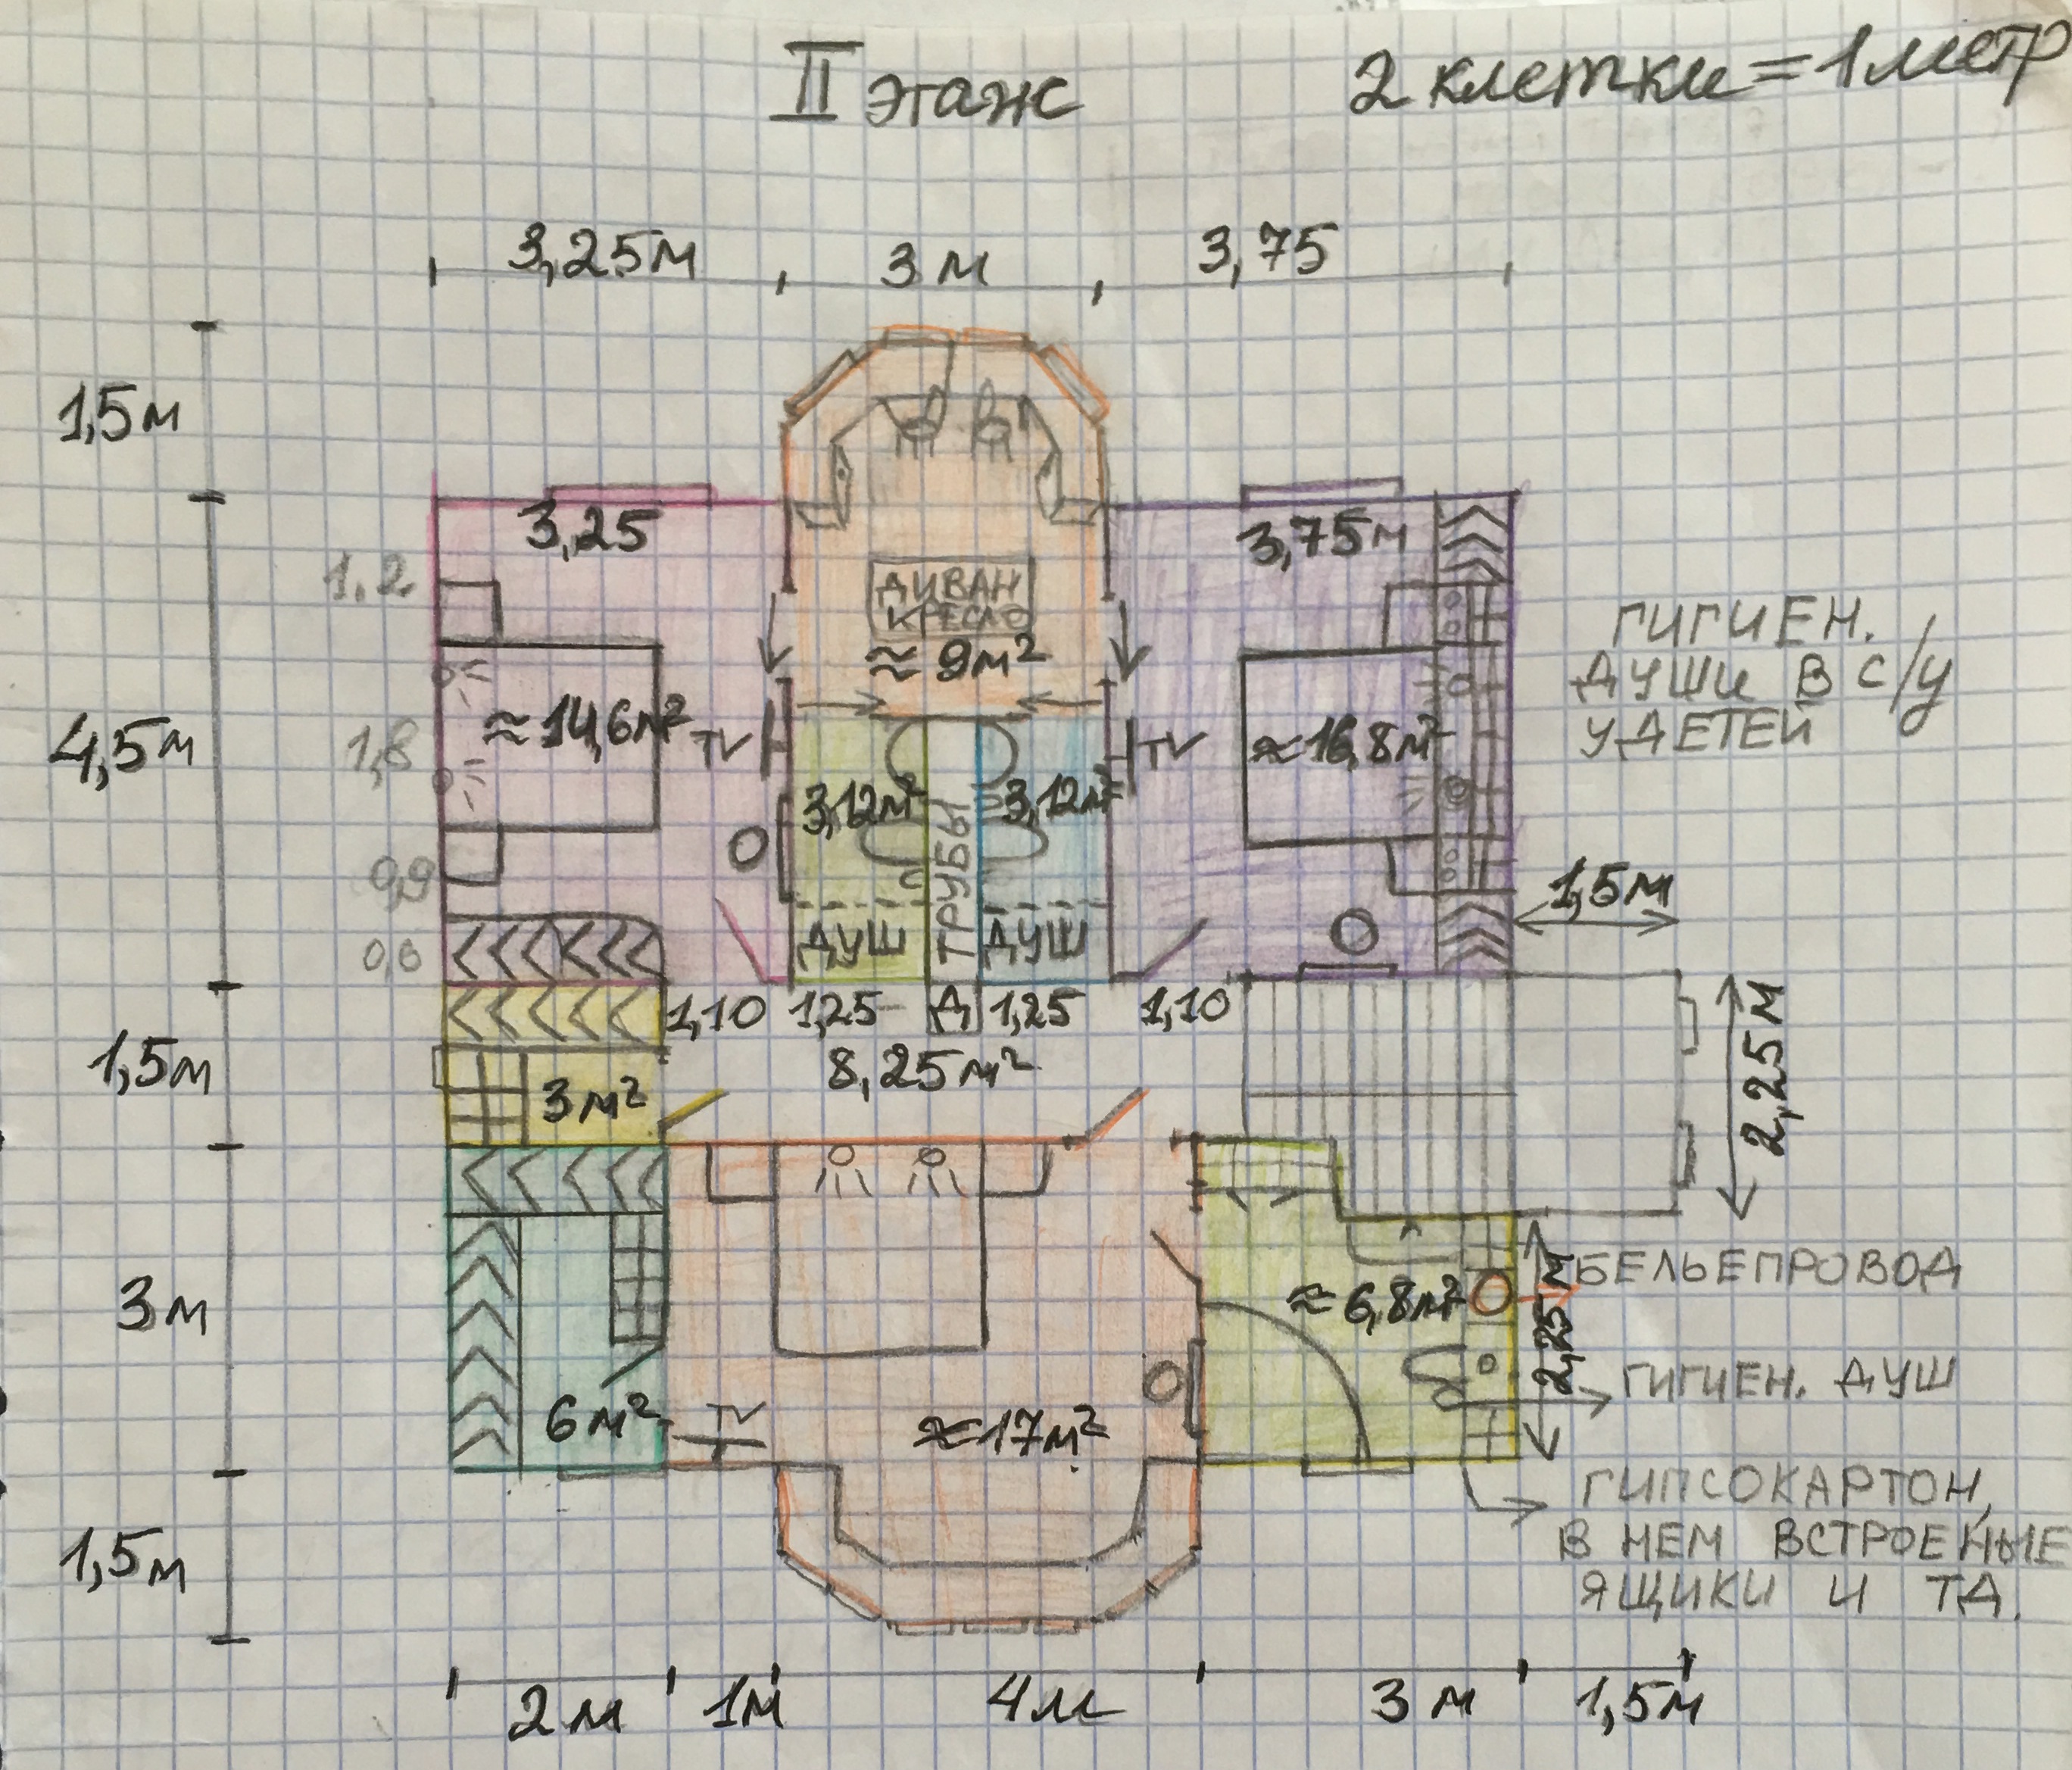 II этаж
2 клетки = 1 метр
3,25м
3 м
3,75
1,5м
3,25
3,75м
1,2
ДИВАН
КРЕСЛО
≈ 9м²
ГИГИЕН.
ДУШИ В С/У
У ДЕТЕЙ
4,5м
1,8
≈ 14,6м²
TV
TV
≈ 16,8м²
3,12м²
3,12м²
ТРУБЫ
0,9
1,5м
0,6
ДУШ
ДУШ
1,10
1,25
Д
1,25
1,10
2,25м
1,5м
8,25м²
3м²
3м
≈ 6,8м²
БЕЛЬЕПРОВОД
2,25м
ГИГИЕН. ДУШ
6м²
TV
≈ 17м²
ГИПСОКАРТОН,
В НЕМ ВСТРОЕННЫЕ
ЯЩИКИ И ТД.
1,5м
2м
1м
4м
3м
1,5м